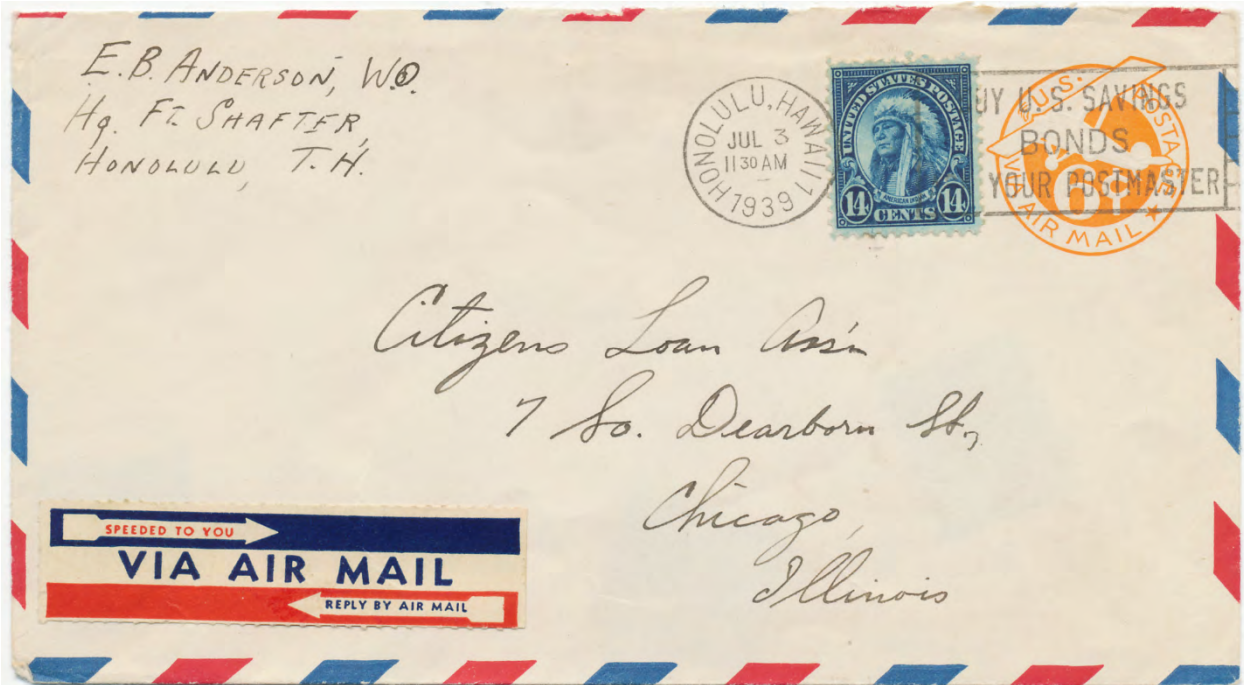 E.B. ANDERSON, W.O.
Hq. FT. SHAFTER,
HONOLULU, T.H.
HONOLULU, HAWAII 1
JUL 3
11 30 AM
1939
UNITED STATES POSTAGE
AMERICAN INDIAN
14 CENTS 14
UY U.S. SAVINGS
BONDS
YOUR POSTMASTER
U.S. POSTAGE
6¢
VIA AIR MAIL
Citizens Loan Ass'n
7 So. Dearborn St.,
Chicago,
Illinois
SPEEDED TO YOU
VIA AIR MAIL
REPLY BY AIR MAIL